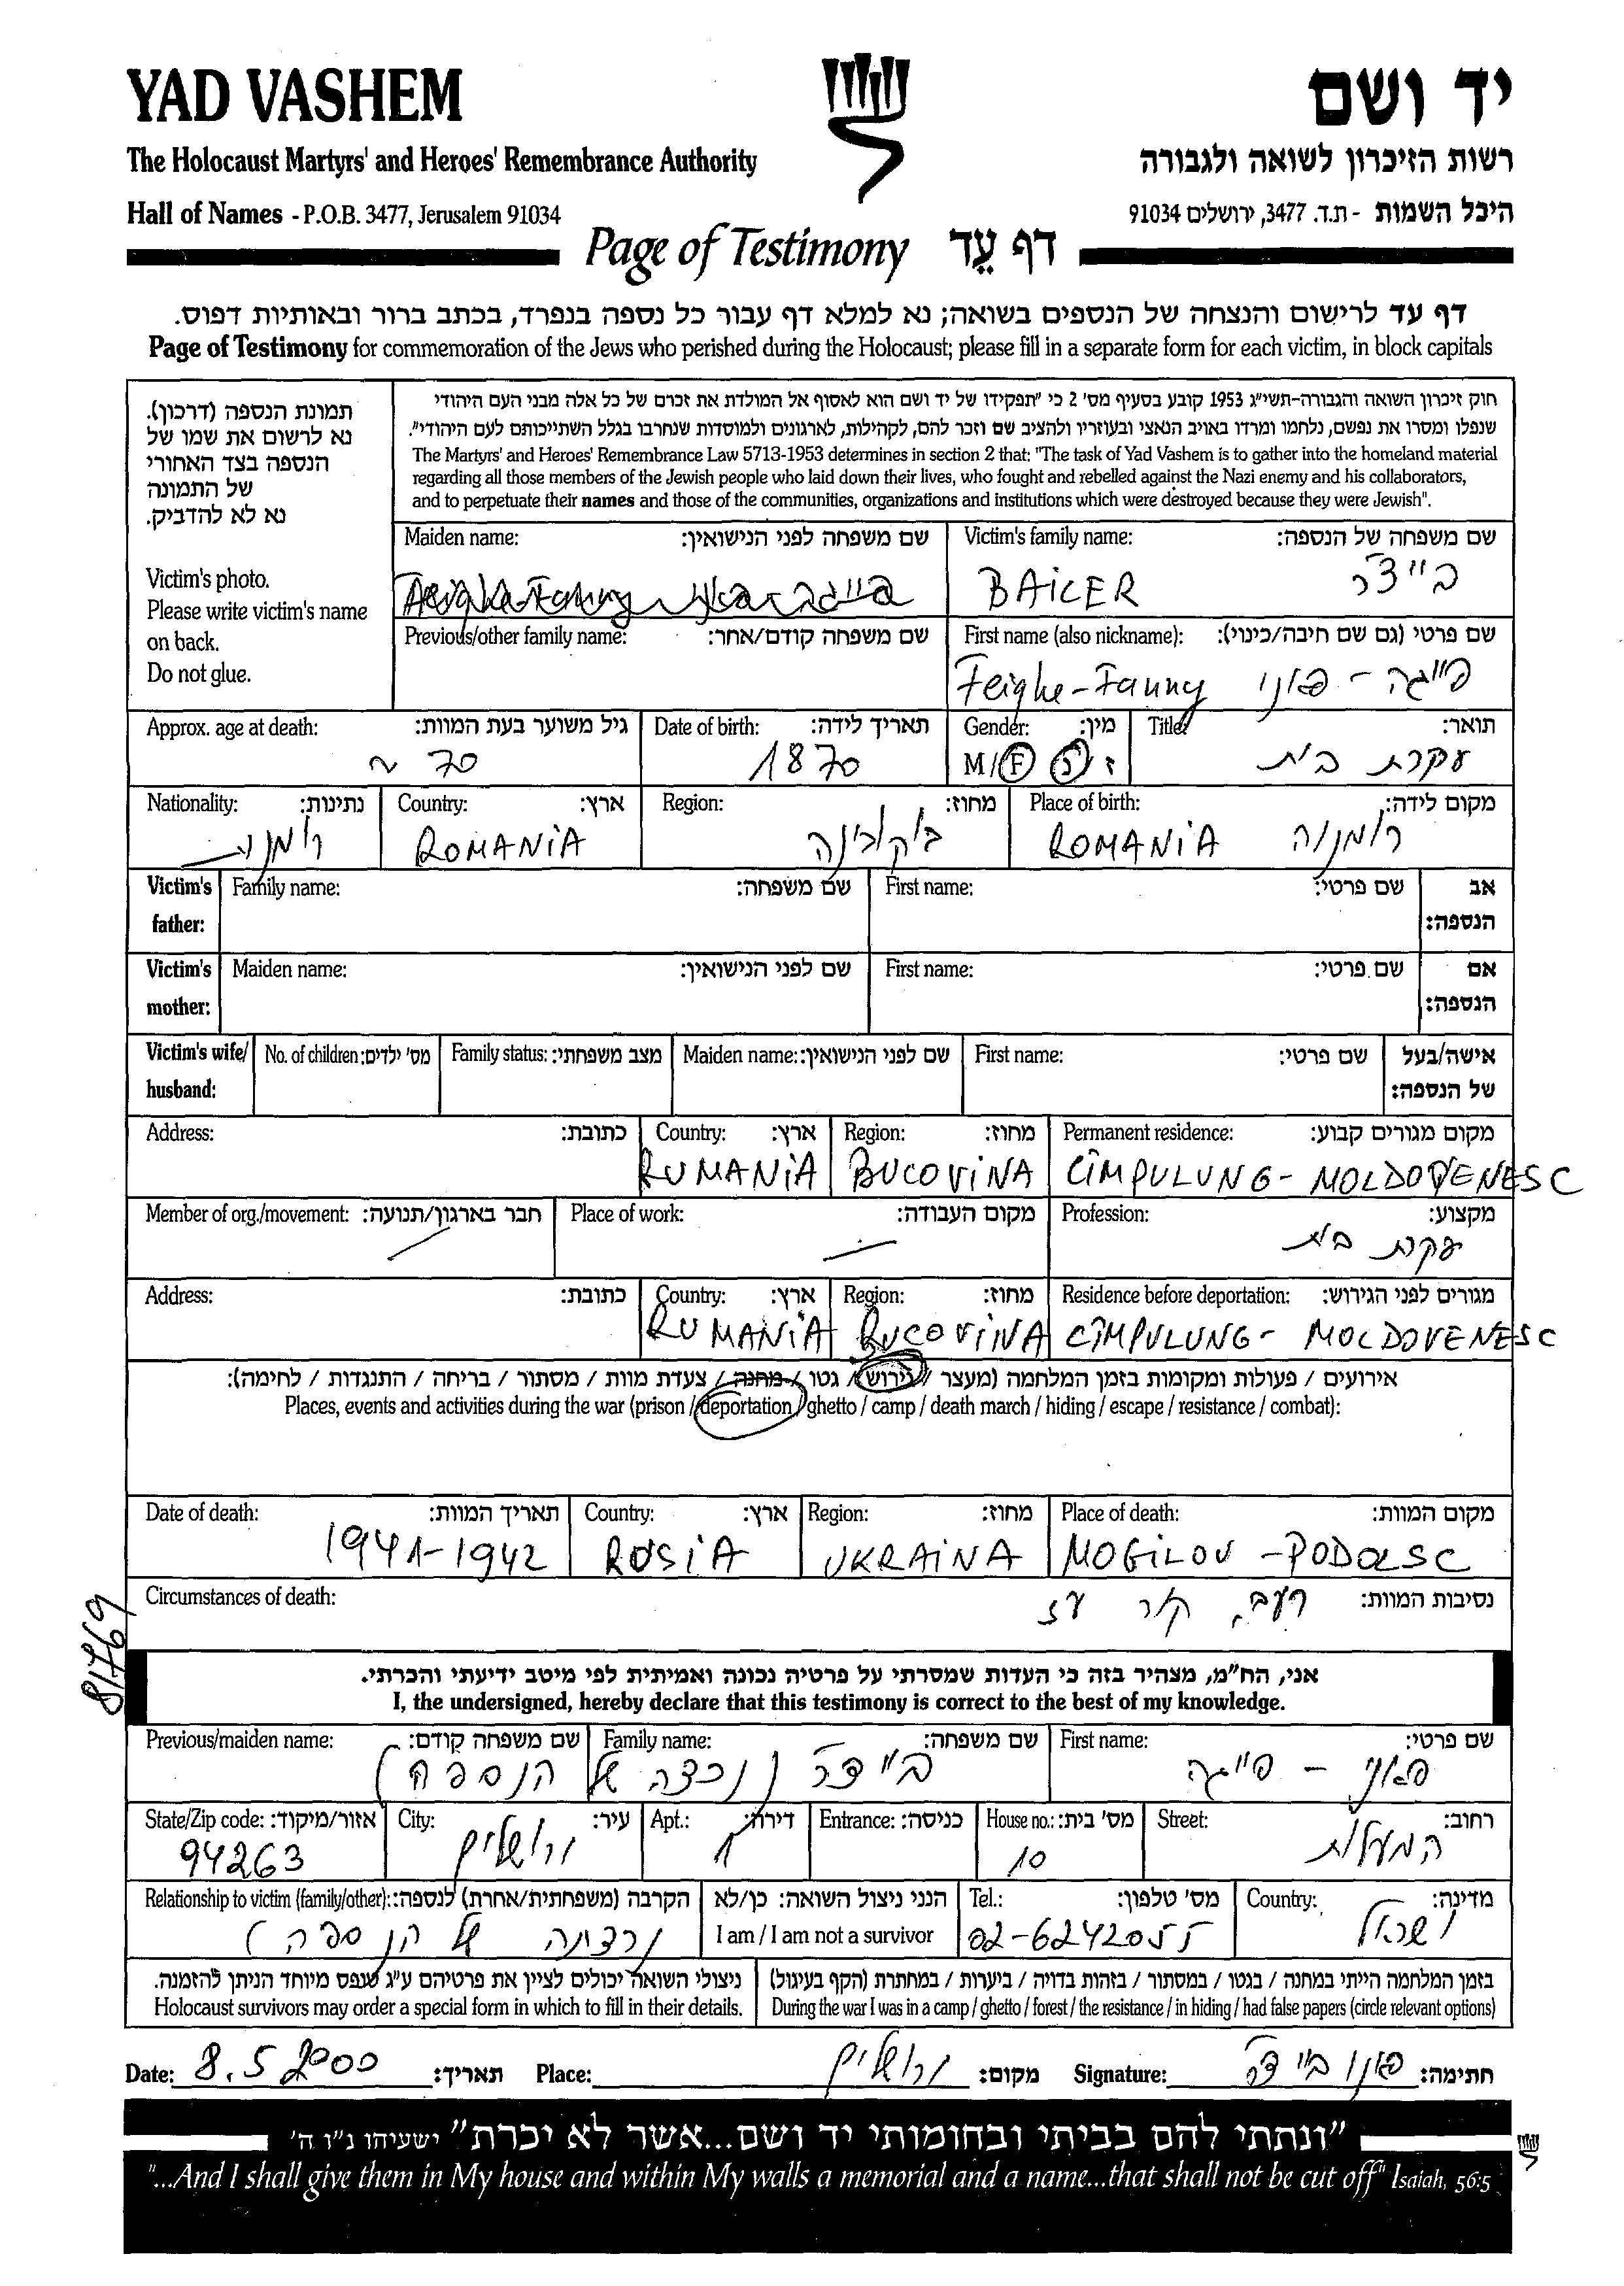 YAD VASHEM יד ושם
The Holocaust Martyrs' and Heroes' Remembrance Authority רשות הזיכרון לשואה ולגבורה
Hall of Names - P.O.B. 3477, Jerusalem 91034 היכל השמות - ת.ד. 3477, ירושלים 91034
Page of Testimony דף עֵד
דף עד לרישום והנצחה של הנספים בשואה; נא למלא דף עבור כל נספה בנפרד, בכתב ברור ובאותיות דפוס.
Page of Testimony for commemoration of the Jews who perished during the Holocaust; please fill in a separate form for each victim, in block capitals
תמונת הנספה (דרכון).
נא לרשום את שמו של
הנספה בצד האחורי
של התמונה
נא לא להדביק.
Victim's photo.
Please write victim's name
on back.
Do not glue.
חוק זיכרון השואה והגבורה-תשי"ג 1953 קובע בסעיף מס' 2 כי "תפקידו של יד ושם הוא לאסוף אל המולדת את זכרם של כל אלה מבני העם היהודי
שנפלו ומסרו את נפשם, נלחמו ומרדו באויב הנאצי ובעוזריו ולהציב שם וזכר להם, לקהילות, לארגונים ולמוסדות שנחרבו בגלל השתייכותם לעם היהודי".
The Martyrs' and Heroes' Remembrance Law 5713-1953 determines in section 2 that: "The task of Yad Vashem is to gather into the homeland material
regarding all those members of the Jewish people who laid down their lives, who fought and rebelled against the Nazi enemy and his collaborators,
and to perpetuate their names and those of the communities, organizations and institutions which were destroyed because they were Jewish".
Maiden name: שם משפחה לפני הנישואין: Victim's family name: שם משפחה של הנספה:
Feighe-Fanny BAICER בייצר
Previous/other family name: שם משפחה קודם/אחר: First name (also nickname): שם פרטי (גם שם חיבה/כינוי):
Feighe-Fanny פייגה - פאני
Approx. age at death: גיל משוער בעת המוות: Date of birth: תאריך לידה: Gender: מין: Title: תואר:
~ 70 1870 M / F ז / נ עקרת בית
Nationality: נתינות: Country: ארץ: Region: מחוז: Place of birth: מקום לידה:
רומנית ROMANIA בוקובינה ROMANIA רומניה
Victim's father: Family name: שם משפחה: First name: שם פרטי: אב הנספה:
Victim's mother: Maiden name: שם לפני הנישואין: First name: שם פרטי: אם הנספה:
Victim's wife/husband: No. of children: מס' ילדים: Family status: מצב משפחתי: Maiden name: שם לפני הנישואין: First name: שם פרטי: אישה/בעל של הנספה:
Address: כתובת: Country: ארץ: Region: מחוז: Permanent residence: מקום מגורים קבוע:
RUMANIA BUCOVINA CÎMPULUNG - MOLDOVENESC
Member of org./movement: חבר בארגון/תנועה: Place of work: מקום העבודה: Profession: מקצוע:
עקרת בית
Address: כתובת: Country: ארץ: Region: מחוז: Residence before deportation: מגורים לפני הגירוש:
RUMANIA BUCOVINA CÎMPULUNG - MOLDOVENESC
אירועים / פעולות ומקומות בזמן המלחמה (מעצר / גירוש / גטו / מחנה / צעדת מוות / מסתור / בריחה / התנגדות / לחימה):
Places, events and activities during the war (prison / deportation / ghetto / camp / death march / hiding / escape / resistance / combat):
Date of death: תאריך המוות: Country: ארץ: Region: מחוז: Place of death: מקום המוות:
1941-1942 ROSIA UKRAINA MOGILOV - PODOLSC
Circumstances of death: נסיבות המוות:
רעב, קור עז
81769
אני, הח"מ, מצהיר בזה כי העדות שמסרתי על פרטיה נכונה ואמיתית לפי מיטב ידיעתי והכרתי.
I, the undersigned, hereby declare that this testimony is correct to the best of my knowledge.
Previous/maiden name: שם משפחה קודם: Family name: שם משפחה: First name: שם פרטי:
בייצר (נכדה של הנספה) פאני - פייגה
State/Zip code: אזור/מיקוד: City: עיר: Apt.: דירה: Entrance: כניסה: House no.: מס' בית: Street: רחוב:
94263 ירושלים 1 10 המעלות
Relationship to victim (family/other): הקרבה (משפחתית/אחרת) לנספה: הנני ניצול השואה: כן/לא Tel.: מס' טלפון: Country: מדינה:
של הנספה) I am / I am not a survivor 02-6242055 ישראל
ניצולי השואה יכולים לציין את פרטיהם ע"ג טופס מיוחד הניתן להזמנה. בזמן המלחמה הייתי במחנה / בגטו / במסתור / בזהות בדויה / ביערות / במחתרת (הקף בעיגול)
Holocaust survivors may order a special form in which to fill in their details. During the war I was in a camp / ghetto / forest / the resistance / in hiding / had false papers (circle relevant options)
Date: 8.5.2000 תאריך: Place: ירושלים מקום: Signature: פאני בייצר חתימה:
"ונתתי להם בביתי ובחומותי יד ושם...אשר לא יכרת" ישעיהו נ"ו ה'
"...And I shall give them in My house and within My walls a memorial and a name...that shall not be cut off" Isaiah, 56:5